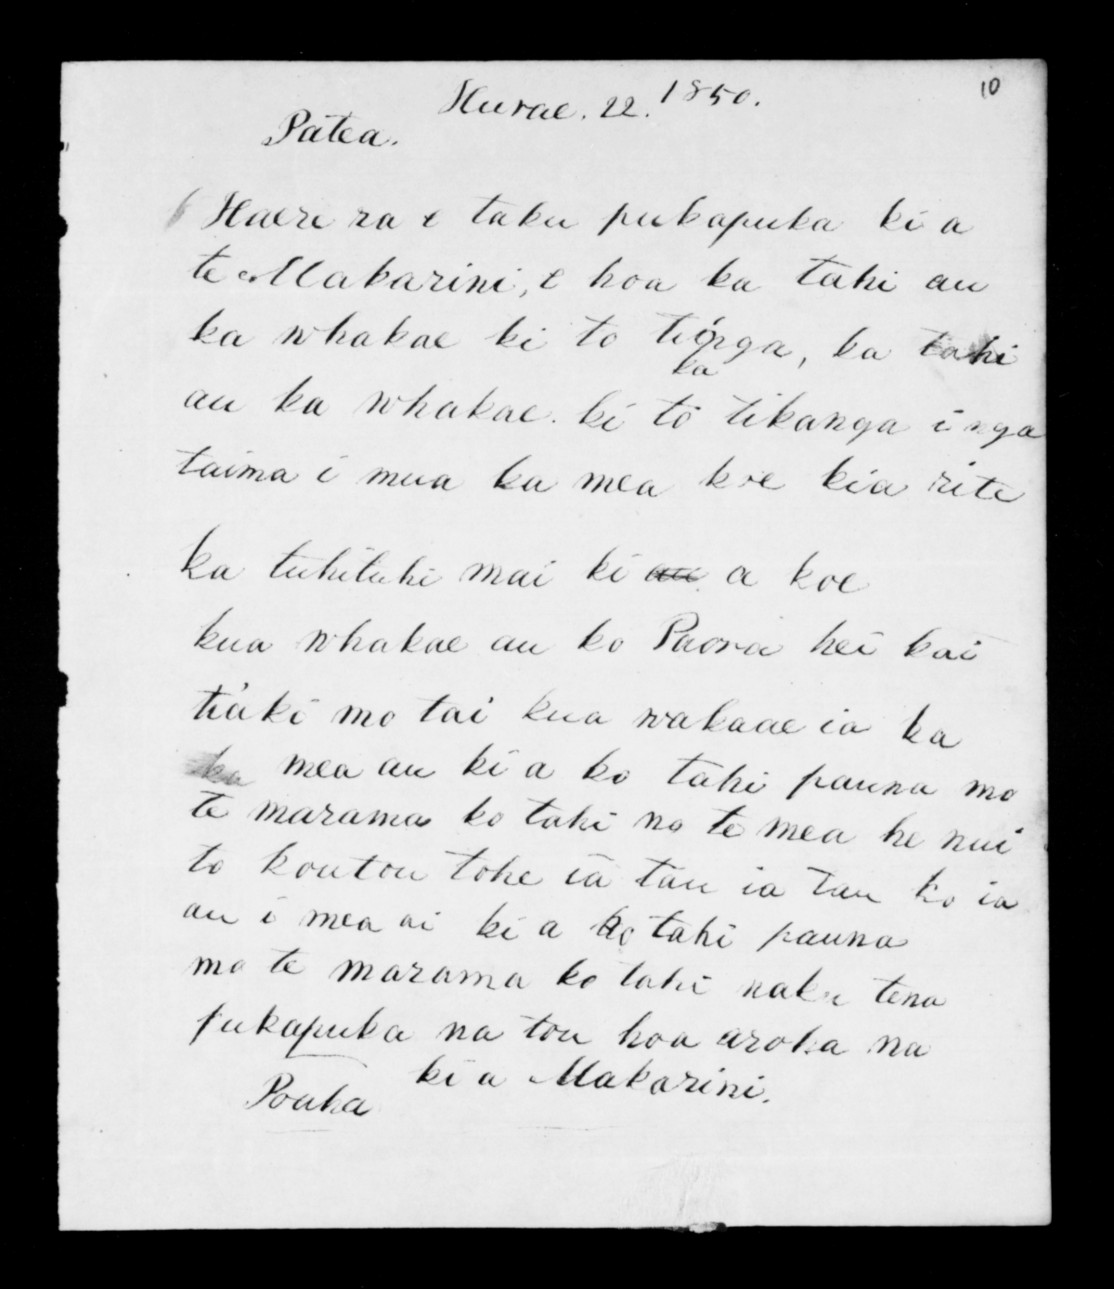 10
Hurae. 22. 1850.
Patea.
Haere ra e taku pukapuka ki a
te Makarini, e hoa ka tahi au
ka whakae ki to tionga, ka tahi
ka
au ka whakae. ki to tikanga i nga
taima i mua ka mea koe kia rite
ka tuhituhi mai ki au a koe
kua whakae au ko Paora hei kai
tiaki mo tai kua wakaae ia ka
ka mea au ki a ko tahi pauna mo
te marama ko tahi no te mea he nui
to koutou tohe ia tau ia tau ko ia
au i mea ai ki a ko tahi pauna
mo te marama ko tahi naku tena
pukapuka na tou hoa aroha na
ki a Makarini.
Pouha